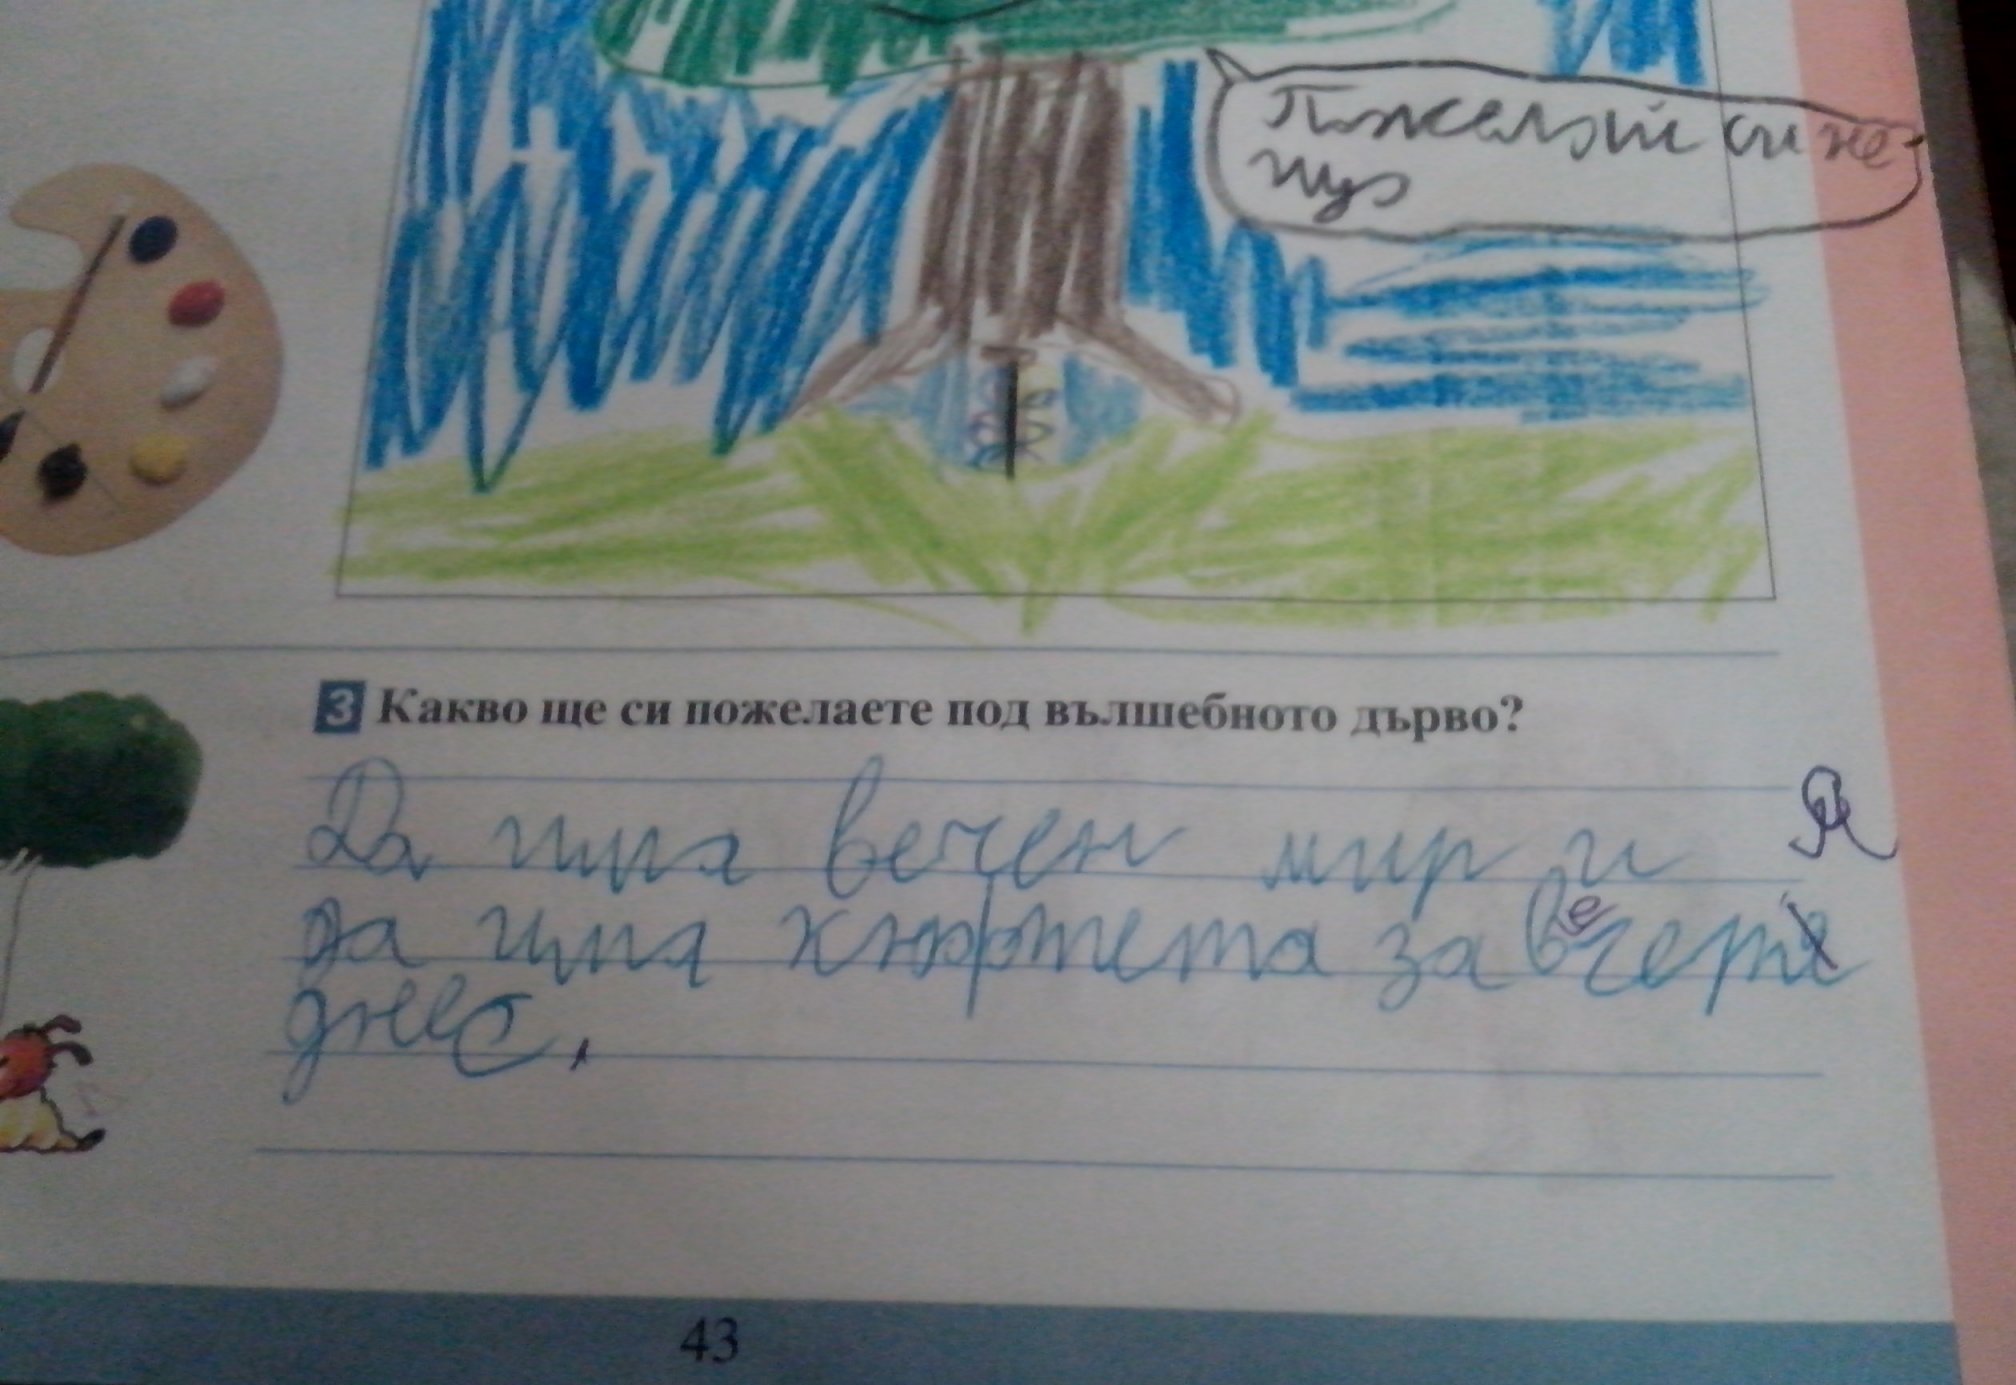 Пожелай си не-
що
3 Какво ще си пожелаете под вълшебното дърво?
Да има вечен мир и
Я
да има кюфтета за вечеря
днес.
43